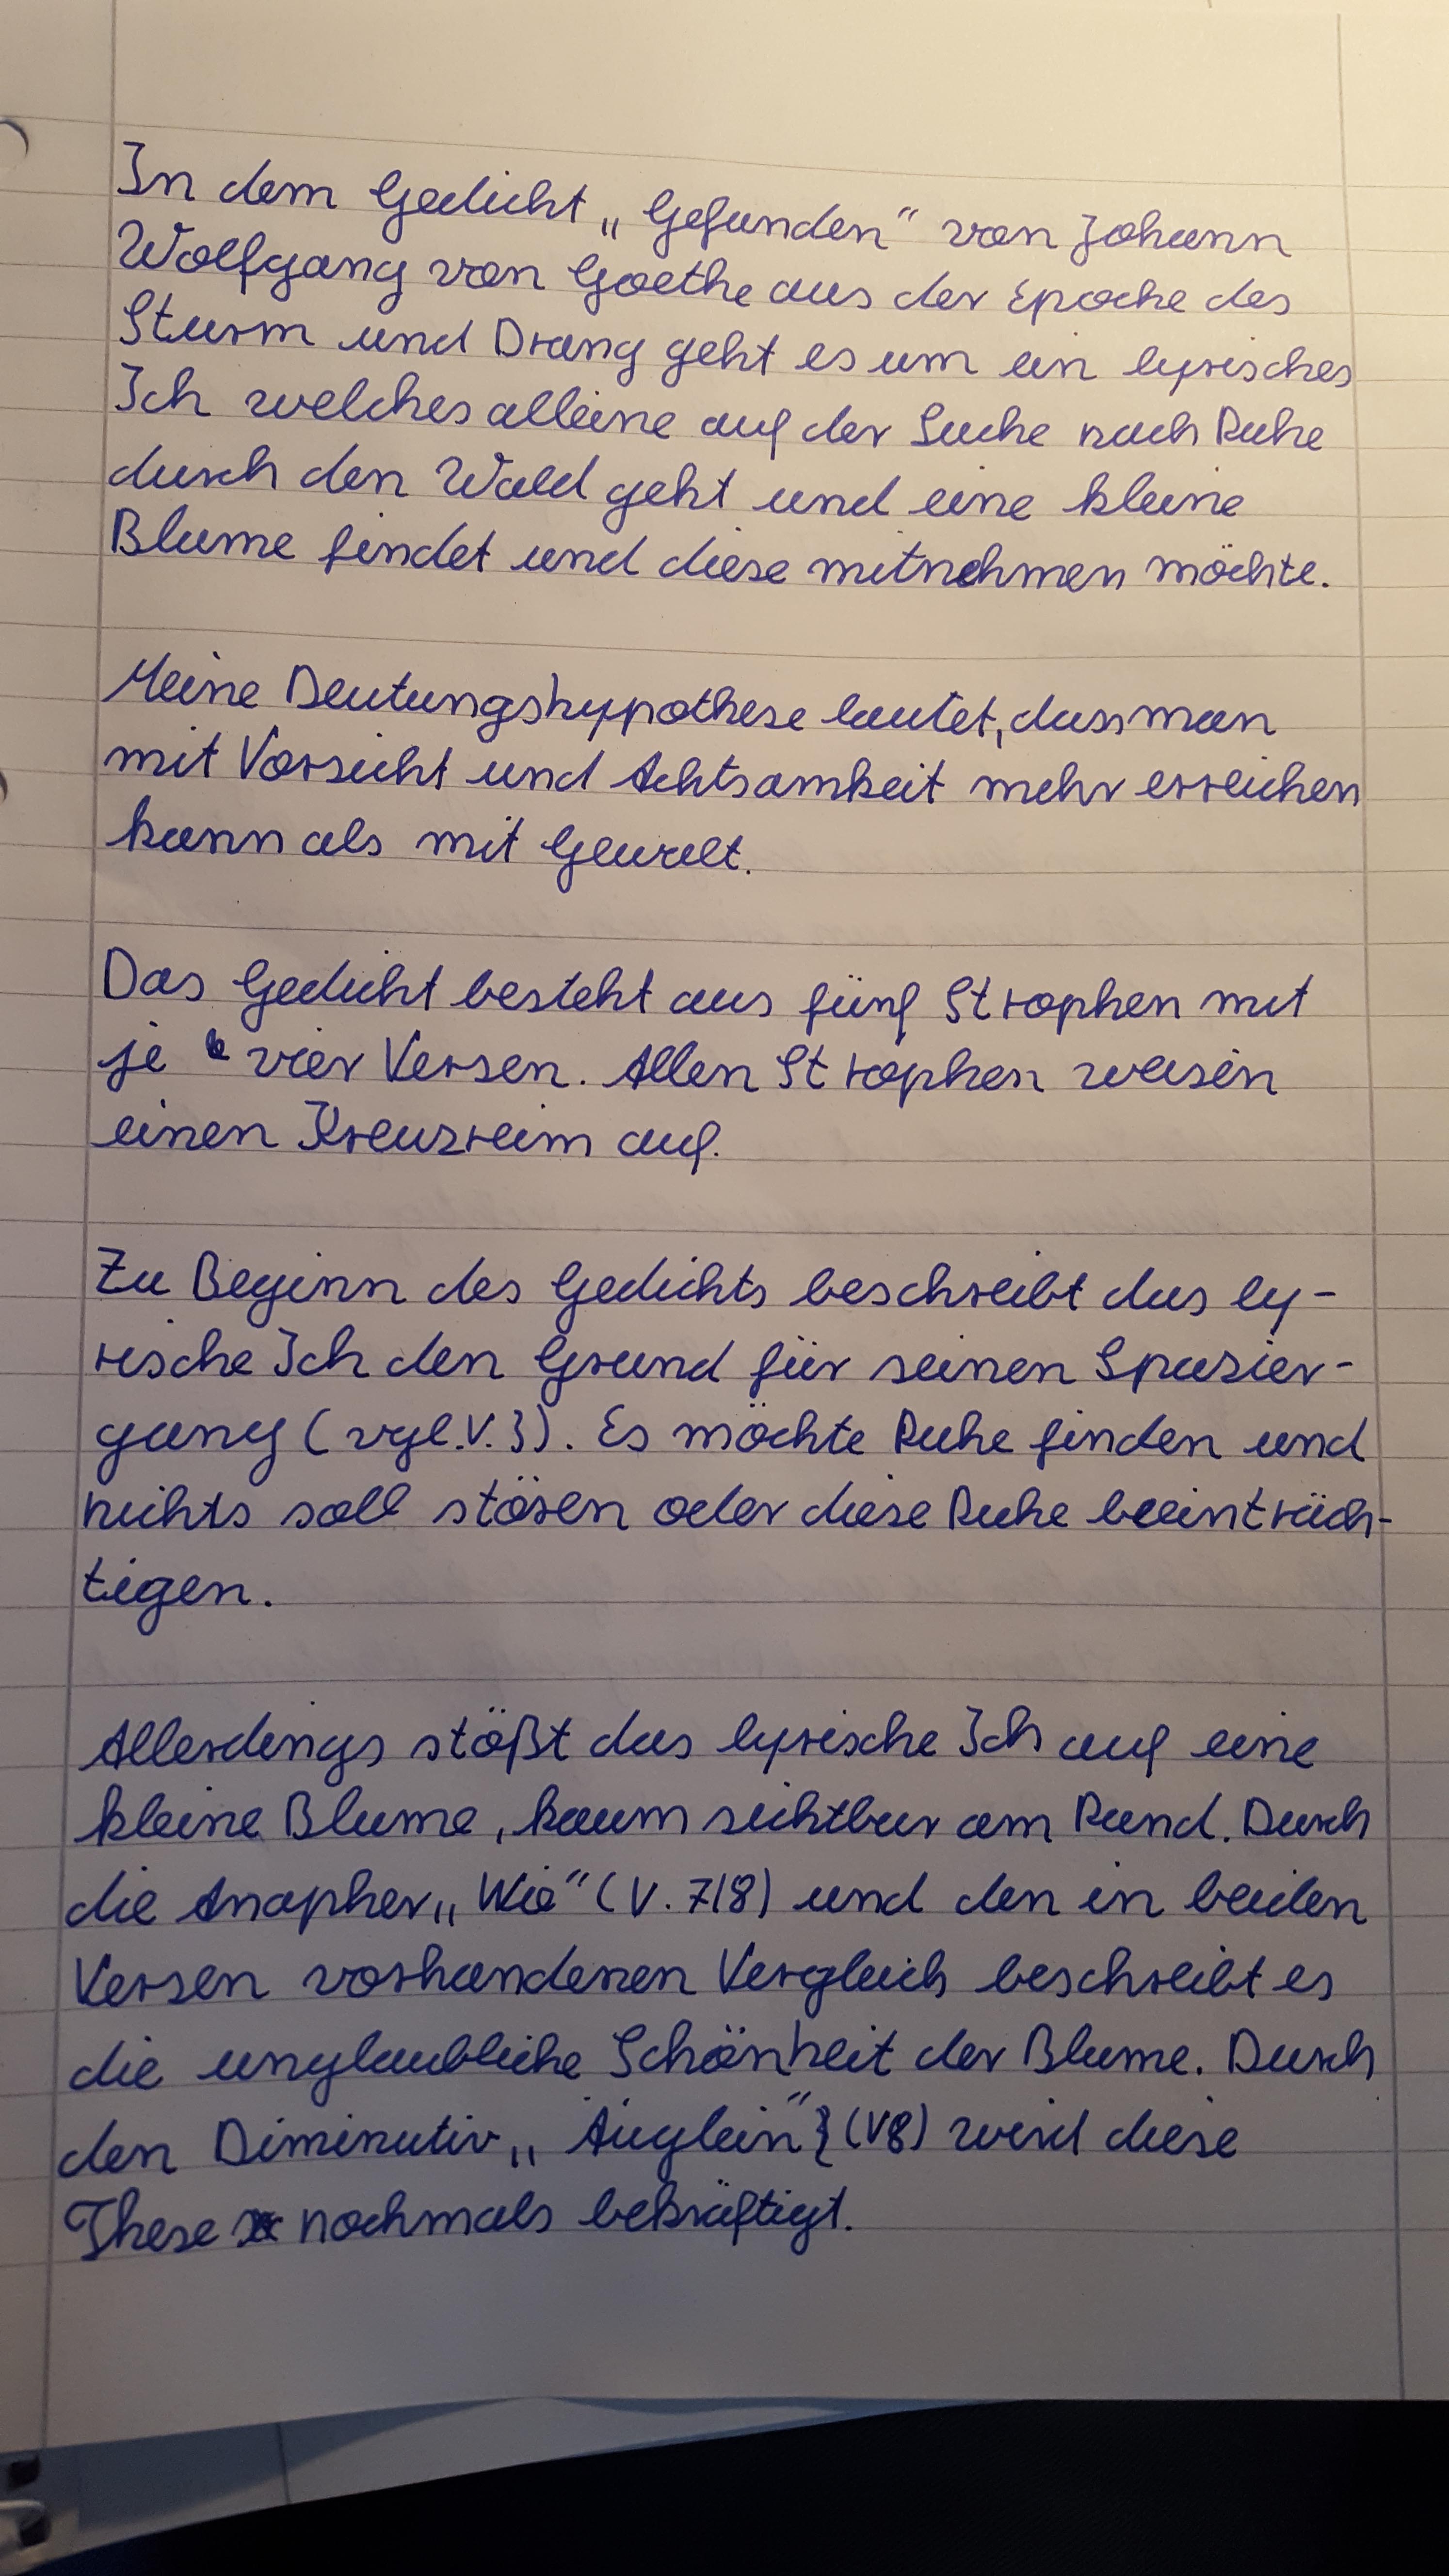 In dem Gedicht „Gefunden" von Johann
Wolfgang von Goethe aus der Epoche des
Sturm und Drang geht es um ein lyrisches
Ich welches alleine auf der Suche nach Ruhe
durch den Wald geht und eine kleine
Blume findet und diese mitnehmen möchte.
Meine Deutungshypothese lautet, dass man
mit Vorsicht und Achtsamkeit mehr erreichen
kann als mit Gewalt.
Das Gedicht besteht aus fünf Strophen mit
je vier Versen. Allen Strophen weisen
einen Kreuzreim auf.
Zu Beginn des Gedichts beschreibt das ly-
rische Ich den Grund für seinen Spazier-
gang (vgl. V. 3). Es möchte Ruhe finden und
nichts soll stören oder diese Ruhe beeinträch-
tigen.
Allerdings stößt das lyrische Ich auf eine
kleine Blume, kaum sichtbar am Rand. Durch
die Anapher „Wie" (V. 7/8) und den in beiden
Versen vorhandenen Vergleich beschreibt es
die unglaubliche Schönheit der Blume. Durch
den Diminutiv „Äuglein" (V8) wird diese
These nochmals bekräftigt.